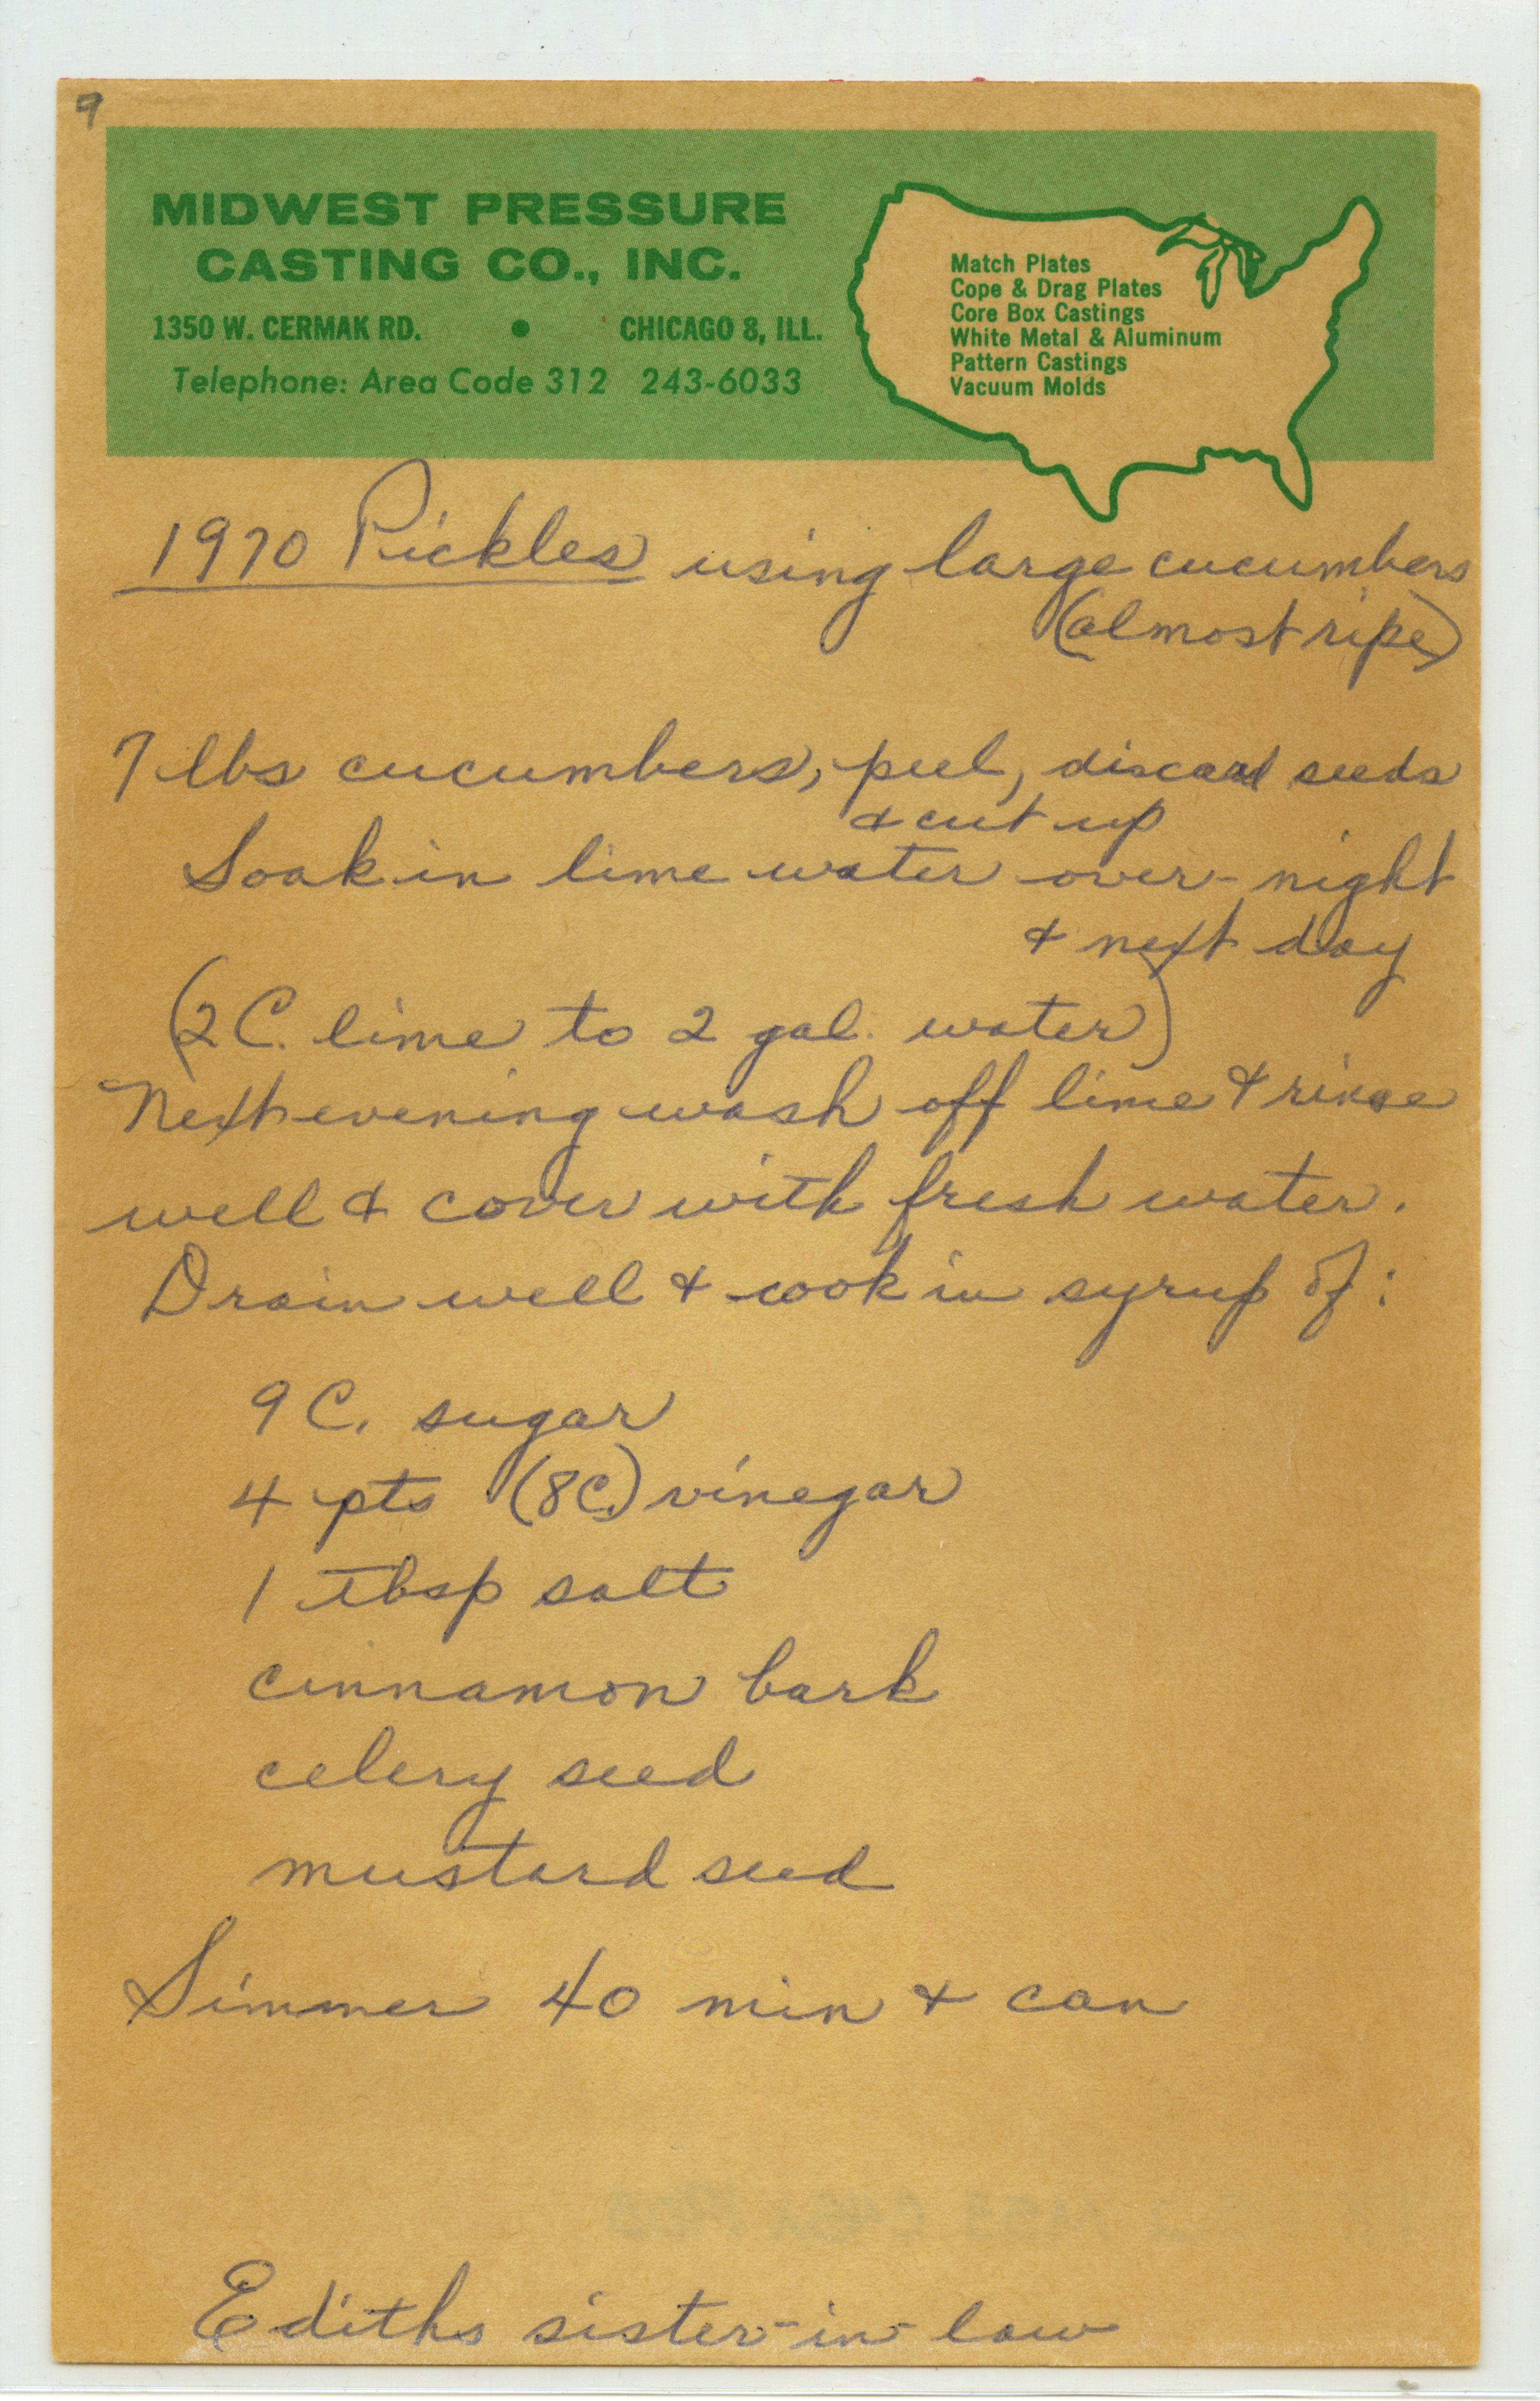 9
MIDWEST PRESSURE
CASTING CO., INC.
1350 W. CERMAK RD. • CHICAGO 8, ILL.
Telephone: Area Code 312 243-6033
Match Plates
Cope & Drag Plates
Core Box Castings
White Metal & Aluminum
Pattern Castings
Vacuum Molds
1970 Pickles using large cucumbers
(almost ripe)
7 lbs cucumbers, peel, discard seeds
& cut up
Soak in lime water over-night
& next day
(2 C. lime to 2 gal. water)
Next evening wash off lime & rinse
well & cover with fresh water.
Drain well & cook in syrup of:
9 C. sugar
4 pts (8C.) vinegar
1 tbsp salt
cinnamon bark
celery seed
mustard seed
Simmer 40 min & can
Ediths sister-in-law